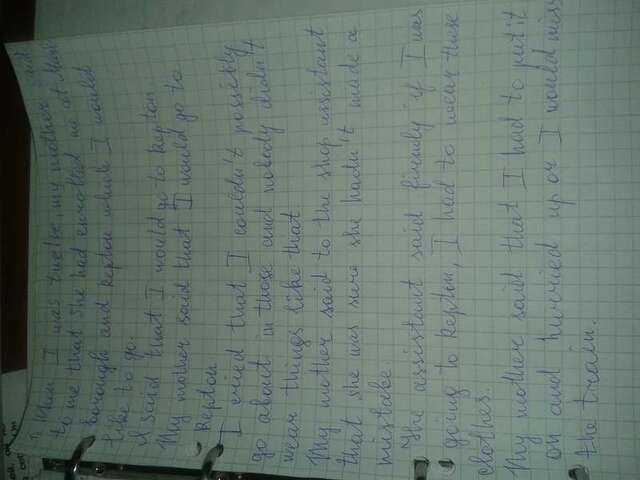 When I was twelve my mother said
to me that she had enrolled me at Marl
borough and Repton which I would
like to go.
I said that I would go to Repton
My mother said that I would go to
Repton
I cried that I couldn't possibly
go about in those and nobody didn't
wear things like that
My mother said to the shop assistant
that she was sure she hadn't made a
mistake.
The assistant said firmly if I was
going to Repton, I had to wear these
clothes.
My mother said that I had to put it
on and hurried up or I would miss
the train.